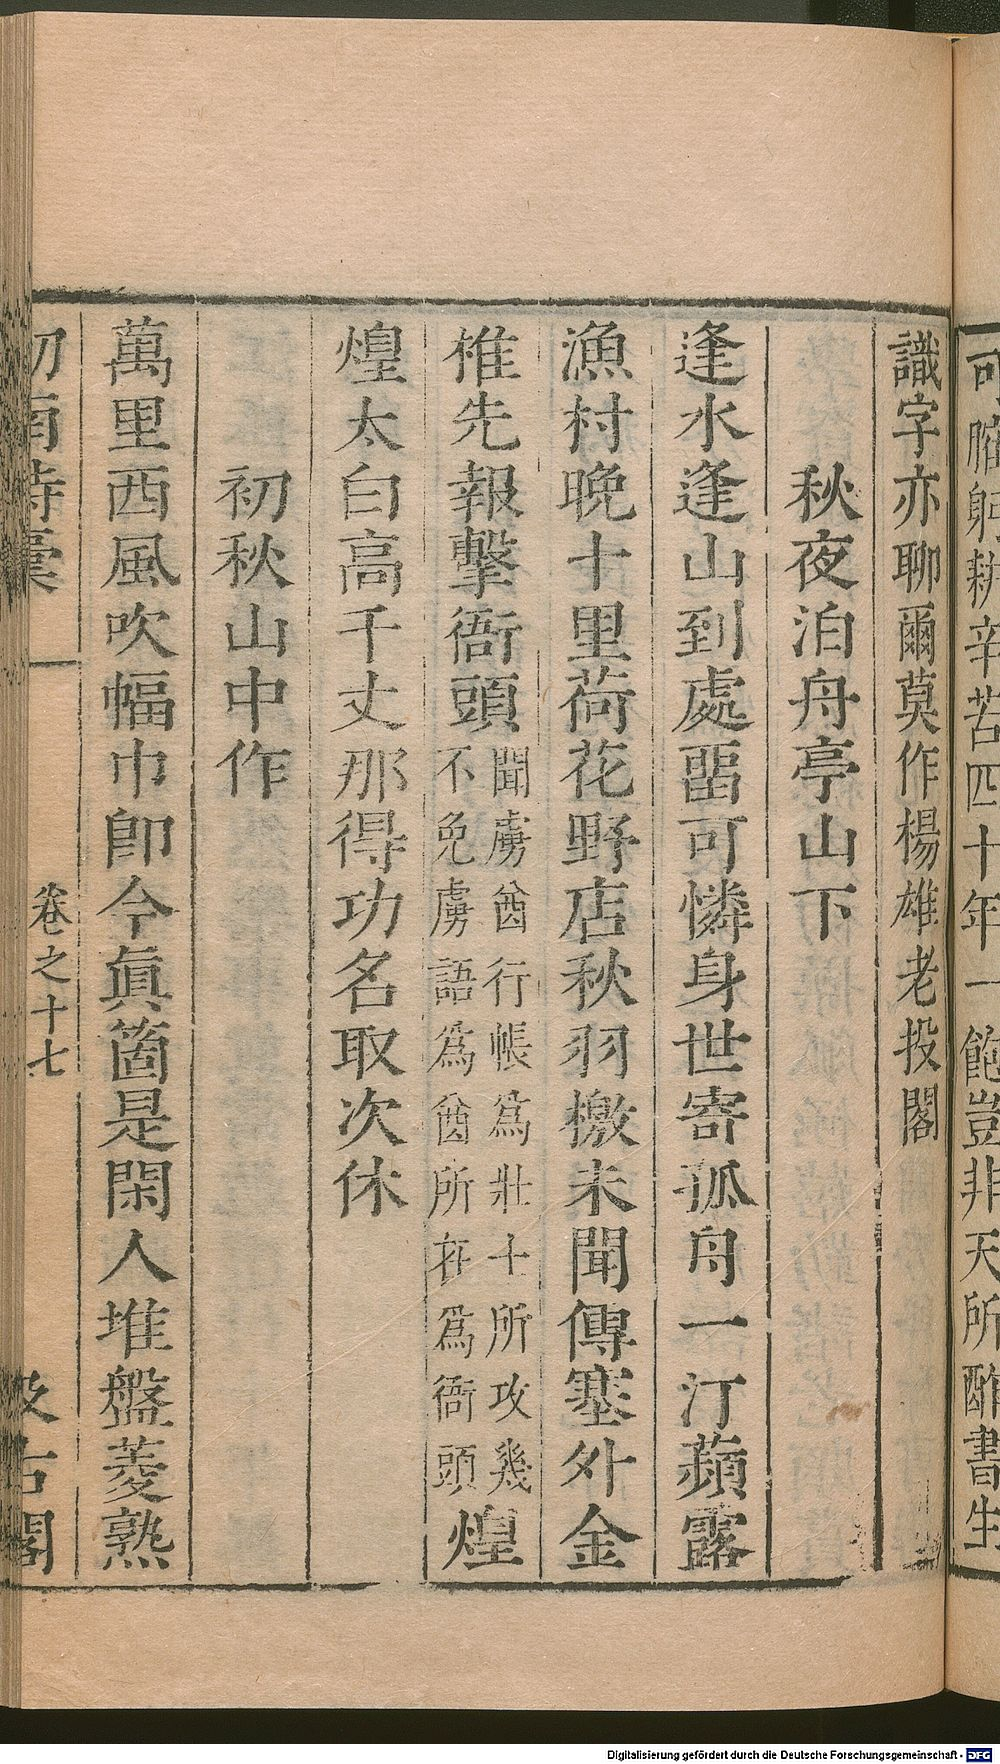 可
躬耕辛苦四十年一飽豈非天所酢書生
識字亦聊爾莫作楊雄老投閣
秋夜泊舟亭山下
逢水逢山到處畱可憐身世寄孤舟一汀蘋露
漁村晚十里荷花野店秋羽檄未聞傳塞外金
椎先報擊衙頭
聞虜酋行帳爲壯士所攻幾
不免虜語爲酋所在爲衙頭
煌
煌太白高千丈那得功名取次休
初秋山中作
萬里西風吹幅巾卽今眞箇是閑人堆盤菱熟
卷之十七
汲古閣
Digitalisierung gefördert durch die Deutsche Forschungsgemeinschaft - DFG